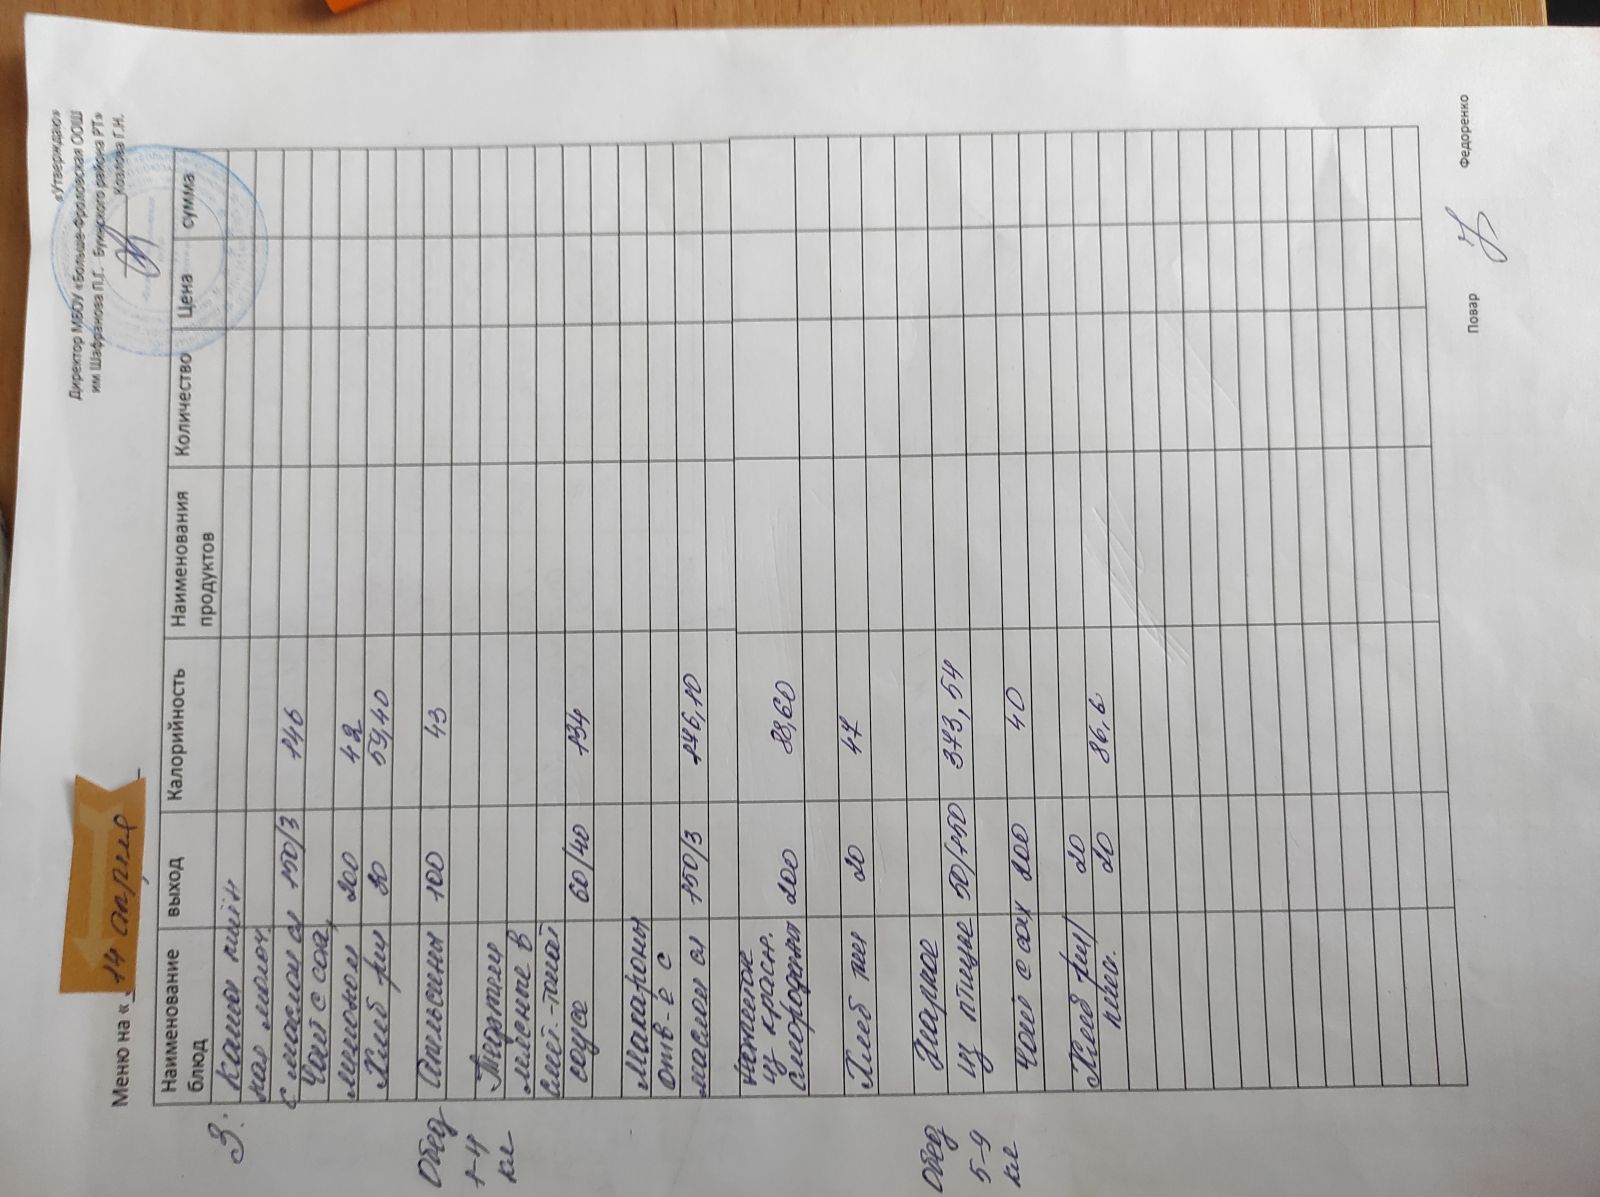 «Утверждаю»
Директор МБОУ «Больше-Фроловская ООШ
им Шафранова П.Г. Буинского района РТ»
Козлова Г.Н.
Меню на « 14 апрел
Наименование блюд выход Калорийность Наименования продуктов Количество Цена сумма
З. Каша пшён
ная молоч.
с маслом сл 150/3 146
Чай с сах,
лимоном 200 42
Хлеб рж 30 59,40
Обед 1-4 кл
Апельсины 100 43
Тефтели
мясные в
смет.-томат
соусе 60/40 134
Макароны
отв-е с
маслом сл 150/3 146,10
Напиток
из красн.
смородины 200 88,60
Хлеб пш 20 47
Обед 5-9 кл
Жаркое
из птицы 50/150 373,54
Чай с сах 200 40
Хлеб рж/ 20
пшен. 20 86,6
Повар Федоренко